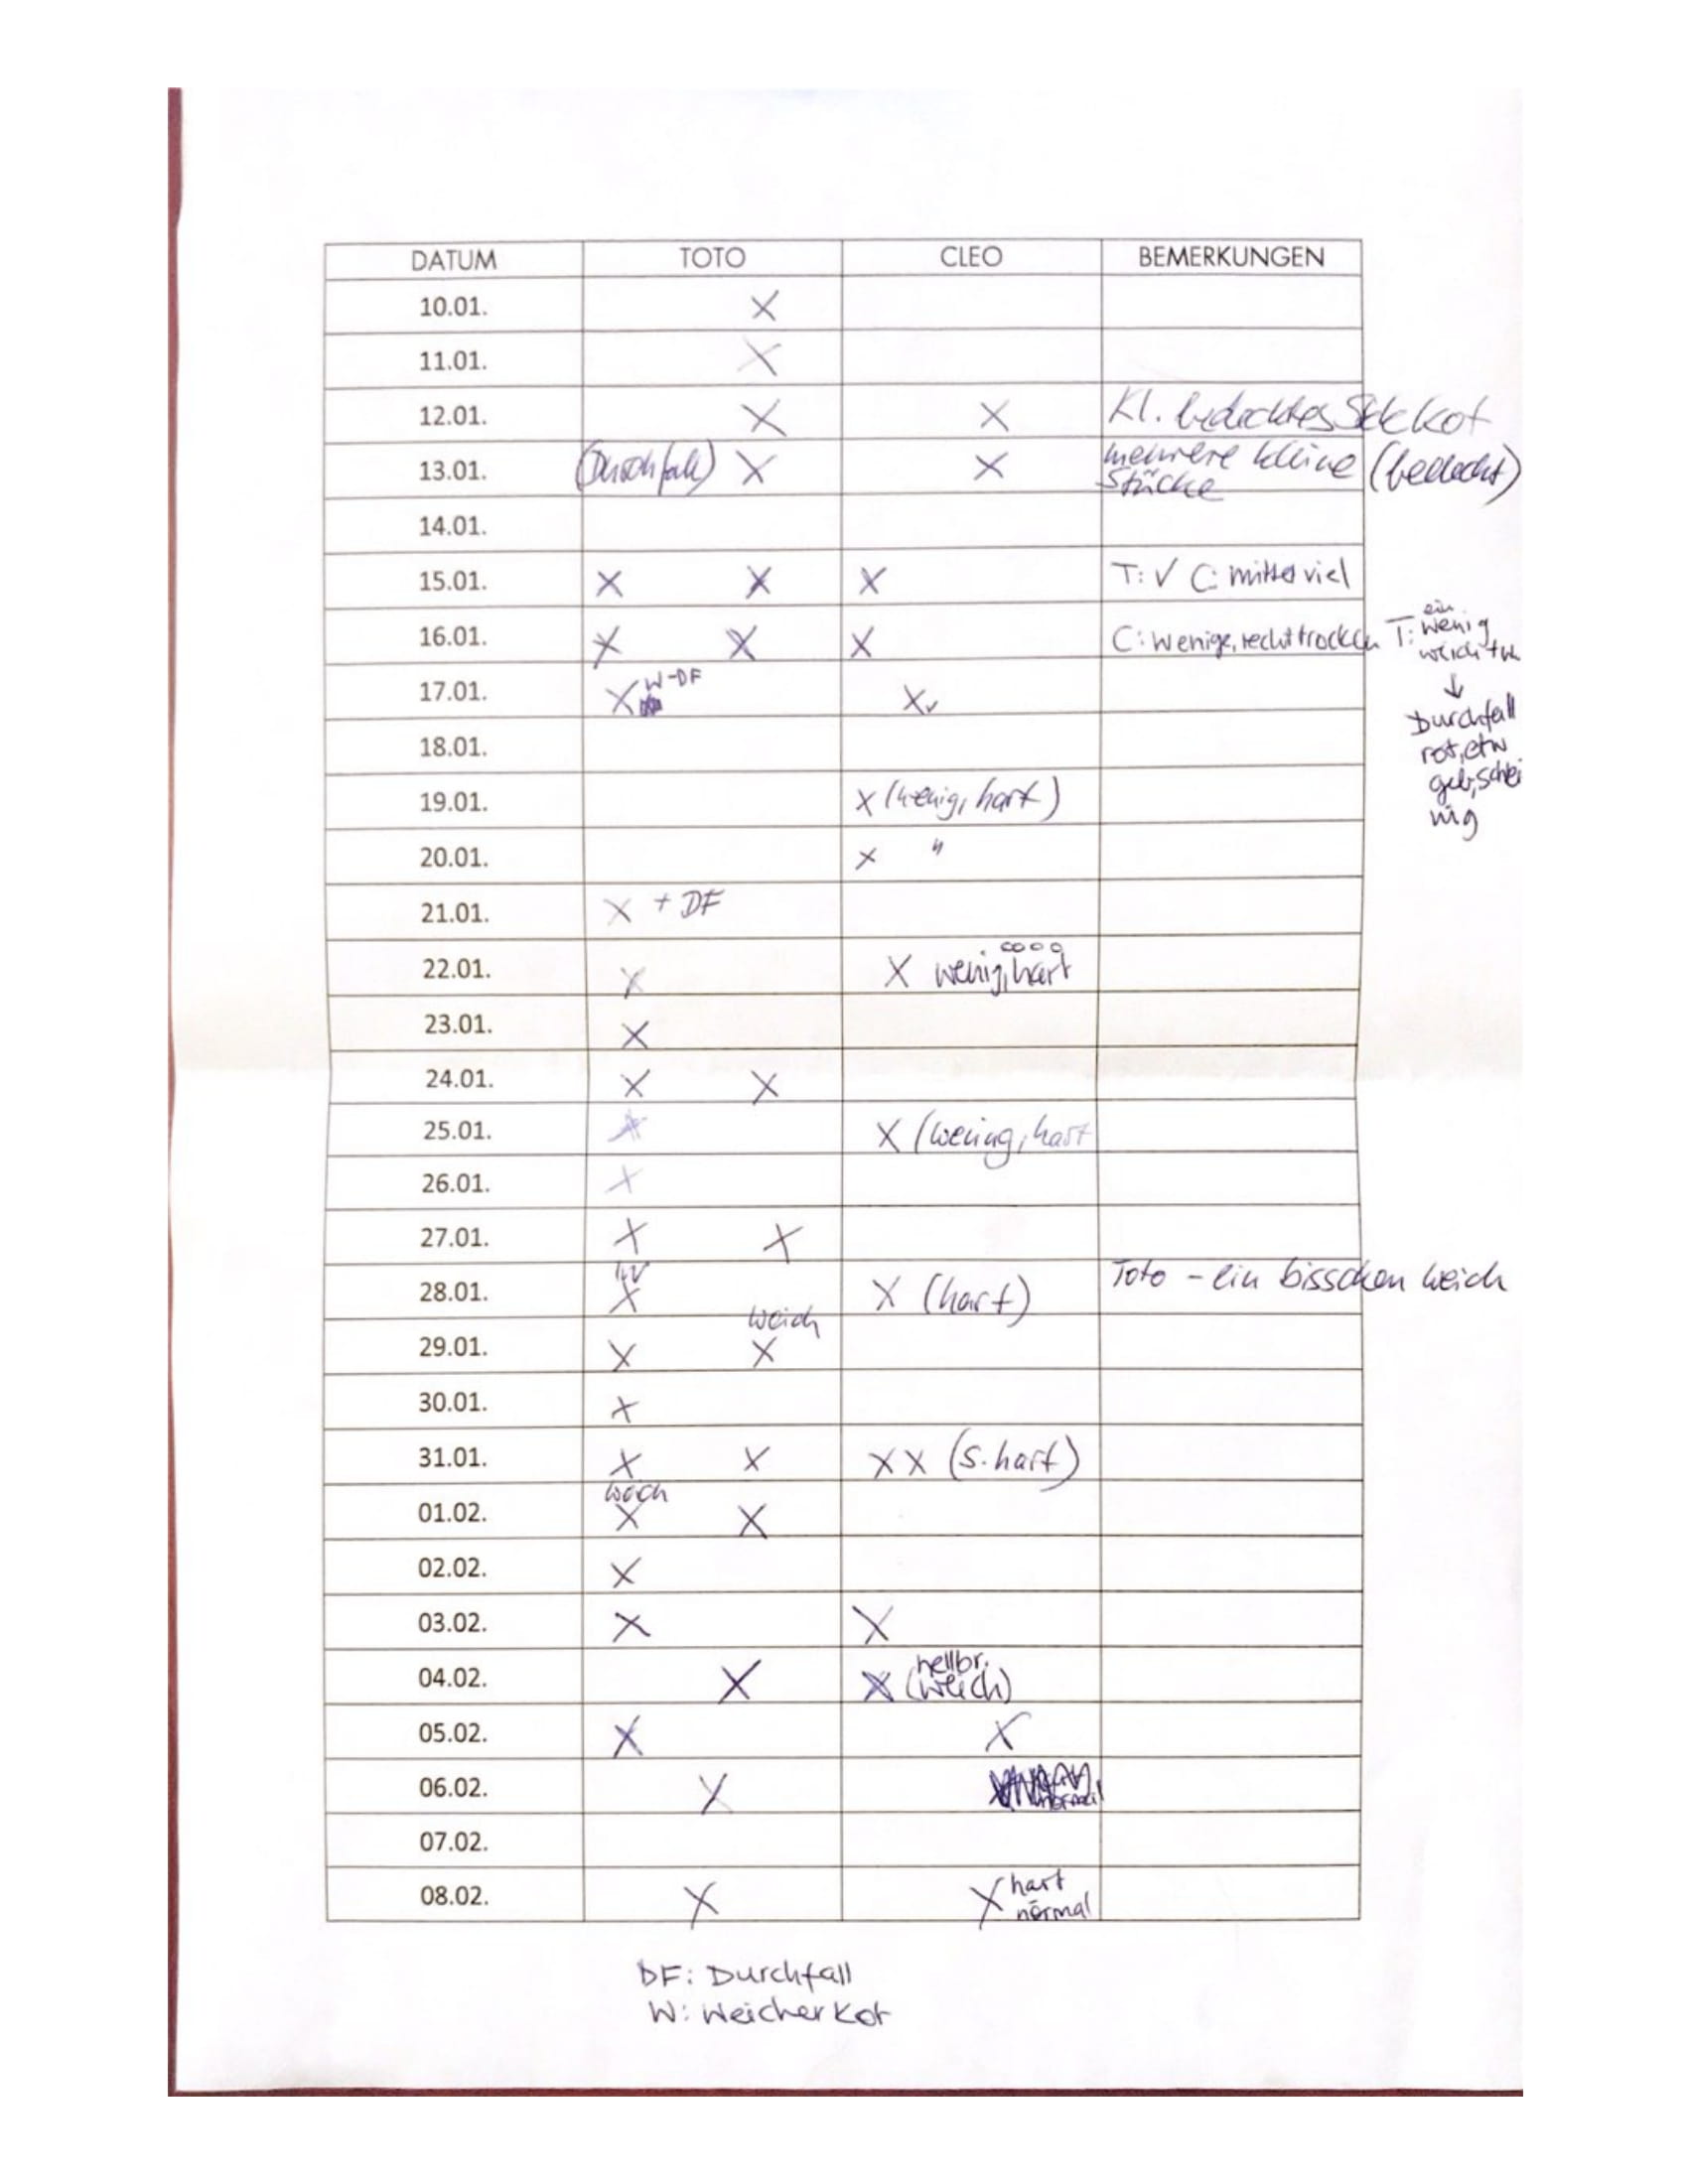 DATUM TOTO CLEO BEMERKUNGEN
10.01. X
11.01. X
12.01. X X Kl. bedecktes Stck Kot
13.01. (Durchfall) X X mehrere kleine (bedeckt)
Stücke
14.01.
15.01. X X X T: ✓ C: mittelviel
16.01. X X X C: wenige, recht trocken T: ein
wenig
weich +
↓
Durchfall
rot, etw
gelb, schlei
mig
17.01. X W-DF X ✓
18.01.
19.01. X (wenig, hart)
20.01. X "
21.01. X + DF
22.01. X X wenig, hart
23.01. X
24.01. X X
25.01. X X (wening, hart
26.01. X
27.01. X X
28.01. W X X (hart) Toto - ein bisschen weich
29.01. X weich X
30.01. X
31.01. X X XX (s. hart)
01.02. weich X X
02.02. X
03.02. X X
04.02. X X hellbr.
(weich)
05.02. X X
06.02. X normal
07.02.
08.02. X X hart
normal
DF: Durchfall
W: Weicher Kot